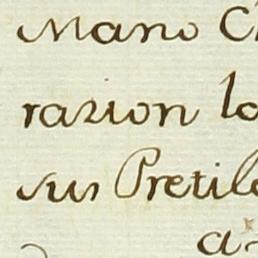 Mano C
razion lo
sus Pretil
a